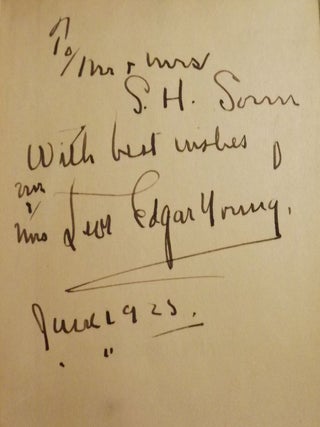 To
Mr + Mrs
S. H.
With best wishes
of
Mr
Mrs Levi Edgar Young.
June 1925.